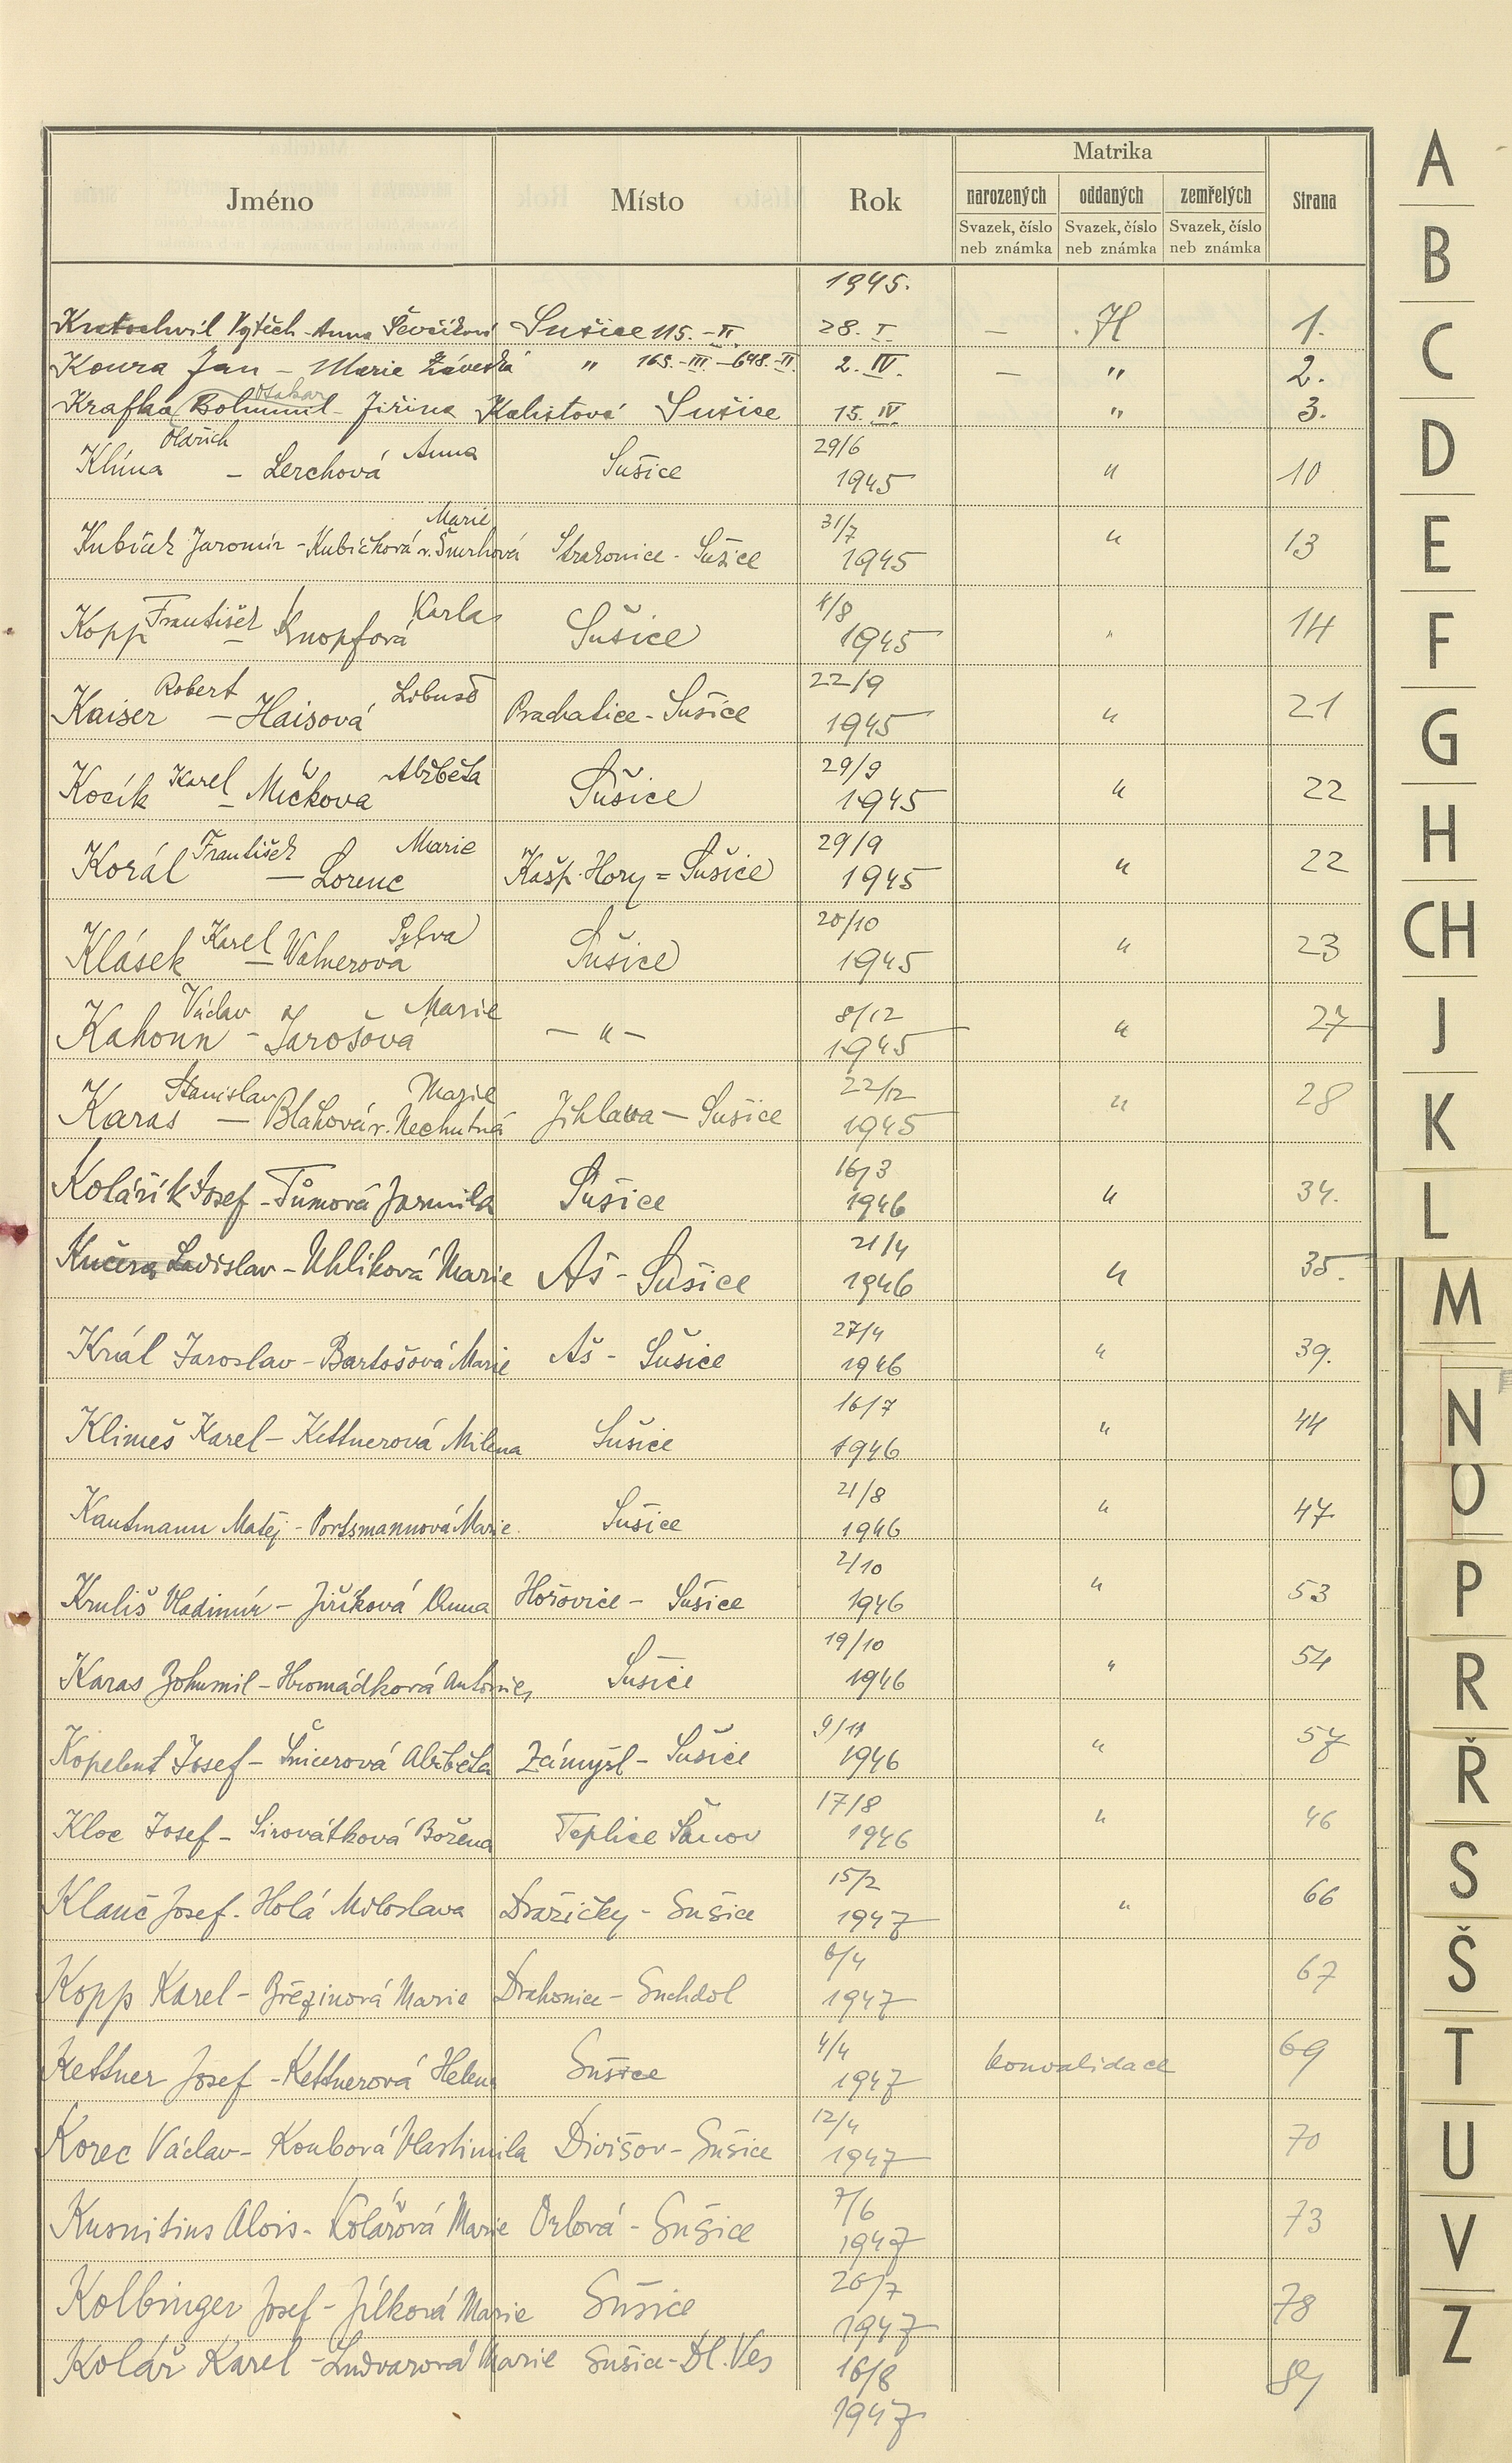 Matrika
Jméno Místo Rok narozených oddaných zemřelých Strana
Svazek, číslo neb známka Svazek, číslo neb známka Svazek, číslo neb známka
1945.
Kratochvil Vojtěch - Anna Ševčíková Sušice 115.-II. 28. I. — H 1.
Koura Jan - Marie Záveská " 165.-III.-698.-II. 2. IV. — " 2.
Otakar
Krafka (Bohumil - Jiřina Kalistová Sušice 15. IV " 3.
Oldřich Anna 29/6
Klíma - Lerchová Sušice 1945 " 10
Marie 31/7
Kubíček Jaromír - Kubíčková r. Šmrhová Strakonice - Sušice 1945 " 13
František Karla 4/8
Kopp - Knopfová Sušice 1945 " 14
Robert Libuše 22/9
Kaiser - Haisová Prachatice - Sušice 1945 " 21
Karel Alžběta 29/9
Kocík - Mičkova Sušice 1945 " 22
František Marie 29/9
Korál - Lorenc Kašp. Hory = Sušice 1945 " 22
Karel Sylva 20/10
Klásek - Walnerová Sušice 1945 " 23
Václav Marie 8/12
Kahoun - Jarošová - " - 1945 " 27
Stanislav Marie 22/12
Karas - Bláhová r. Nechutná Jihlava - Sušice 1945 " 28
16/3
Kolářík Josef - Tůmová Jarmila Sušice 1946 " 34.
21/4
Kučera Ladislav - Uhlíková Marie Aš - Sušice 1946 " 35.
27/4
Král Jaroslav - Bartošová Marie Aš - Sušice 1946 " 39.
16/7
Klimeš Karel - Kettnerová Milena Sušice 1946 " 44
21/8
Kautmann Matěj - Portsmannová Marie. Sušice 1946 " 47
2/10
Kruliš Vladimír - Jiříková Anna Hořovice - Sušice 1946 " 53
19/10
Karas Bohumil - Hromádková Antonie, Sušice 1946 " 54
9/11
Kopelent Josef - Šnicerová Alžběta Zámyšl - Sušice 1946 " 57
17/8
Kloc Josef - Sirovátková Božena Teplice Šanov 1946 " 46
15/2
Klanč Josef - Holá Miloslava Dražičky - Sušice 1947 " 66
6/4
Kopp Karel - Březinová Marie Drahonice - Suchdol 1947 67
4/4
Kettner Josef - Kettnerová Helena Sušice 1947 konvalidace 69
12/4
Korec Václav - Koubová Vlastimila Divišov - Sušice 1947 70
7/6
Kusnitius Alois - Kolářová Marie Orlová - Sušice 1947 73
26/7
Kolbinger Josef - Jílková Marie Sušice 1947 78
Kolář Karel - Ludvarová Marie Sušice - Dl. Ves 16/8
1947
A
B
C
D
E
F
G
H
CH
J
K
L
M
N
O
P
R
Ř
S
Š
T
U
V
Z